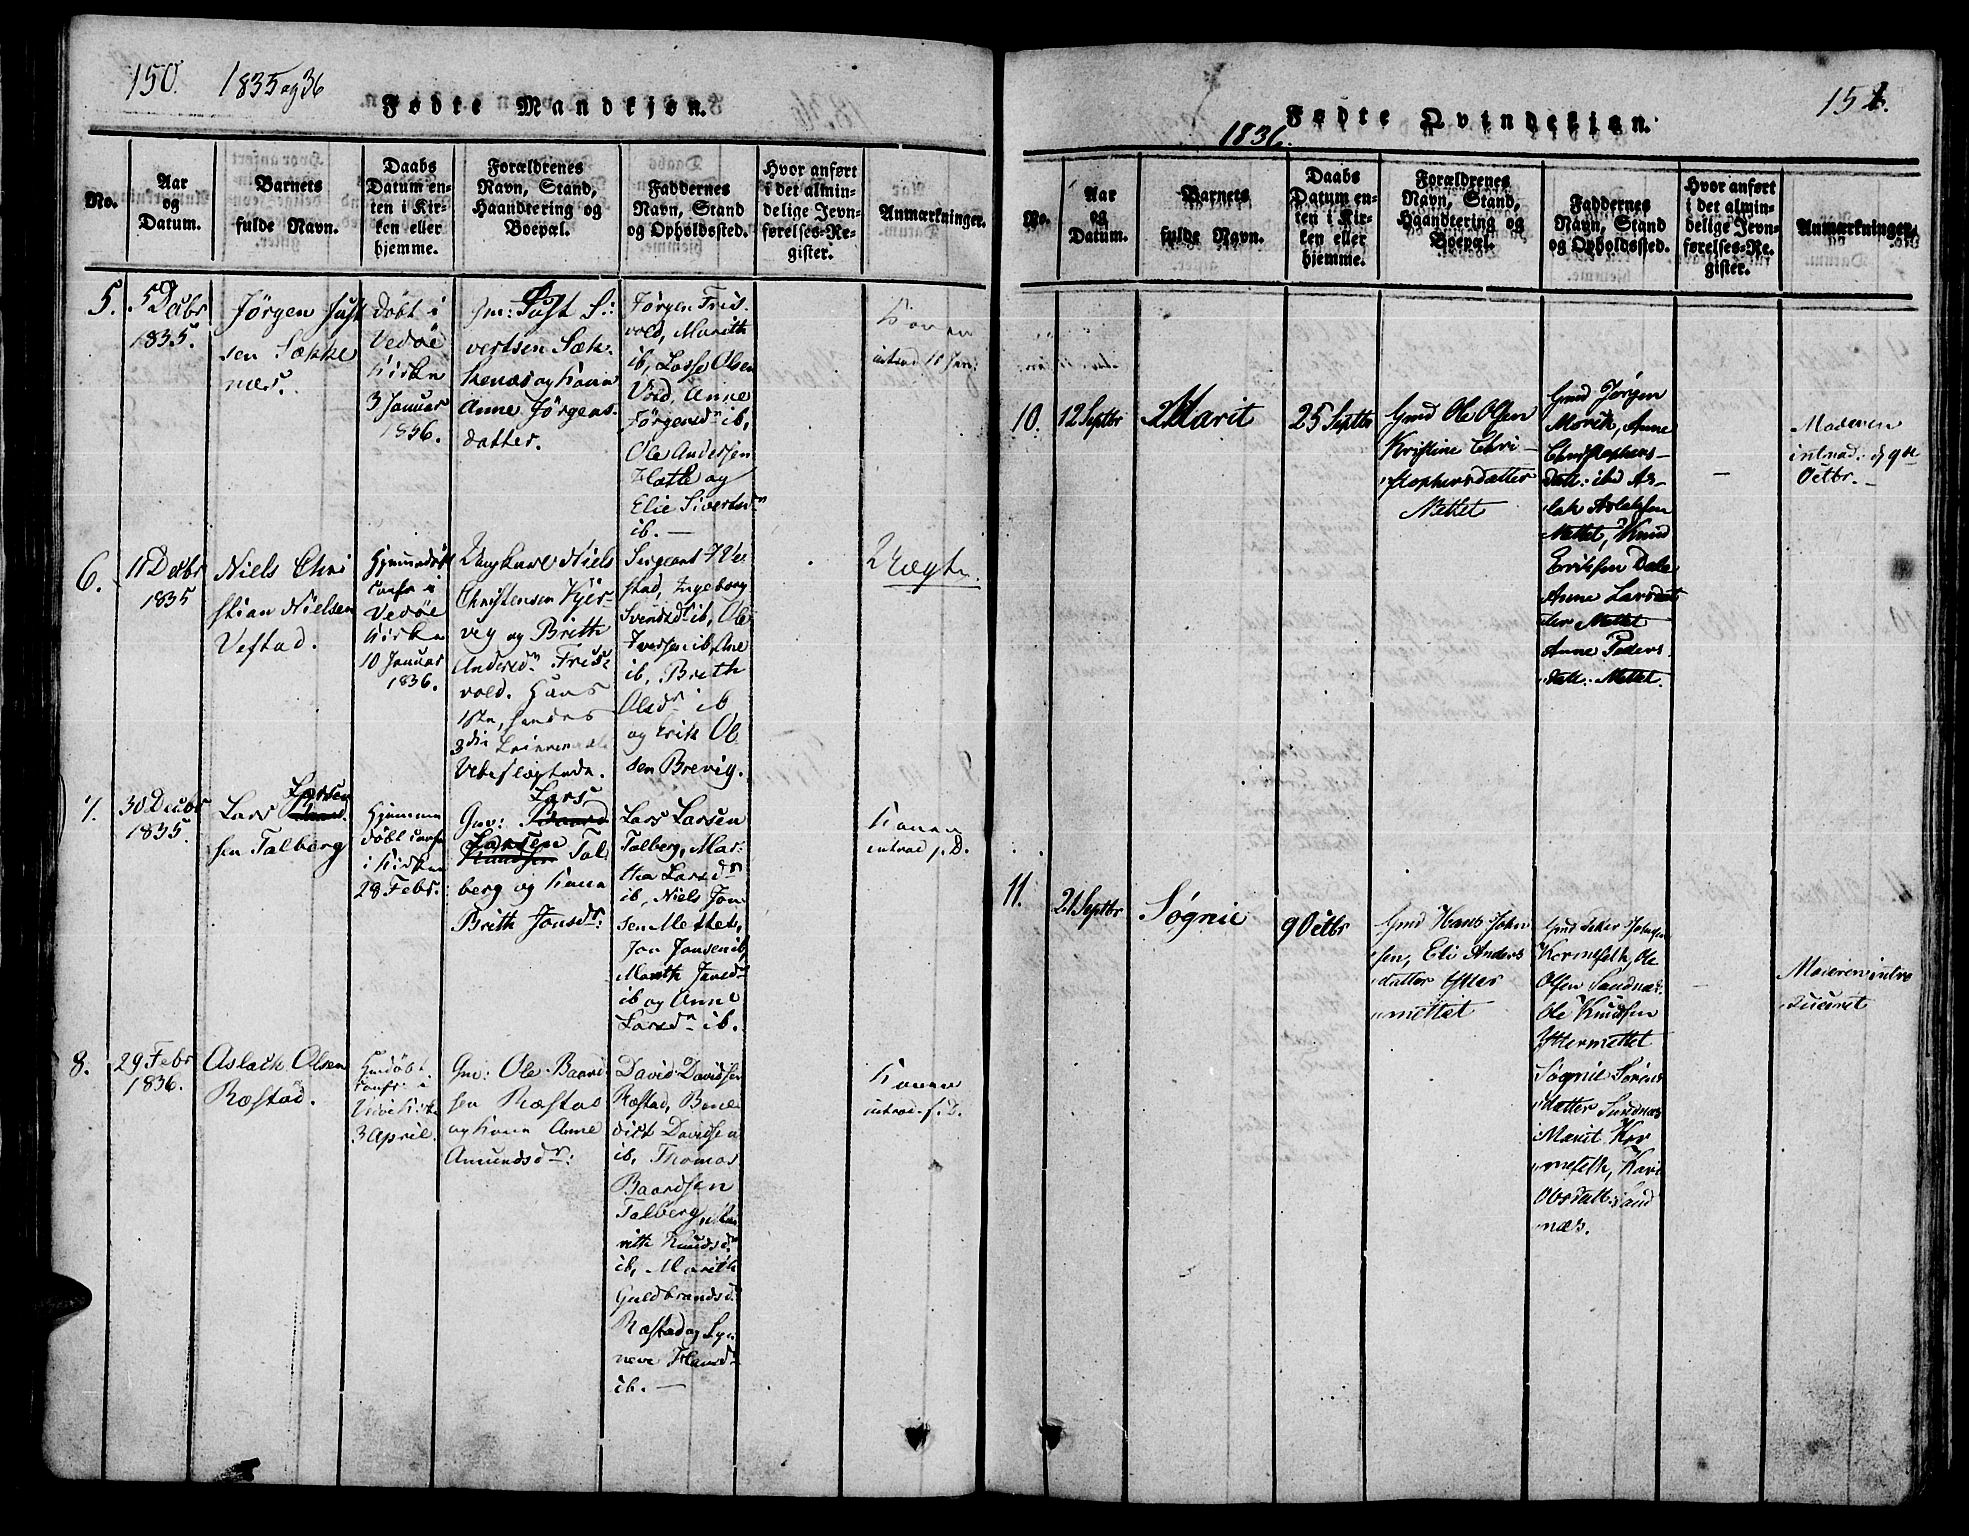 150. 1835 og 36
Fødte Mandkjøn.
No.
Aar
og
Datum.
Barnets
fulde Navn.
Daabs
Datum en-
ten i Kir-
ken eller
hjemme.
Forældrenes
Navn, Stand,
Haandtering og
Boepæl.
Faddernes
Navn, Stand
og Opholdssted.
Hvor anført
i det almin-
delige Jevn-
førelses-Re-
gister.
Anmærkninger.
5.
5 Decbr
1835.
Jörgen Just
sen Sække
næs.
Döbt i
Vedöe
Kirke
3 Januar
1836.
Gm: Just Si:
vertsen Sæk
kenæs og Kone
Anne Jörgens-
datter.
Jörgen Fris
vold, Marith
ib, Lasse Olsen
Vold, Anne
Jörgensdr ib,
Ole Andersen
Hatle og
Elie Sivertsdr
ib. —
Konen
introd 10 Janr:
6.
11 Decbr
1835
Niels Chri
stian Nielsen
Vestad.
Hjemmedöbt
confr i
Vedöe
Kirke
10 Januar
1836.
Ungkarl Niels
Christensen Kjer-
vey og Brithe
Andersdr Fris
vold. Hans
1ste, hendes
3die Leiermaal
Ubeslægtede.
Sergeant Ve
stad, Ingeborg
Svendsdr ib, Ole
Iversen ib, Ane
ib, Brith
Olsdr ib
og Erik Ol
sen Brevig.
Uægte.
7.
30 Decbr
1835.
Lars Larsen
sen Talberg
Hjemme
döbt confr
i Kirken
28 Febr.
Gm: Lars
Larsen Tal
berg og Kone
Brith Jonsdr:
Lars Larsen
Talberg, Mar
the Larsdr
ib, Niels Jon
sen Mettet,
Jon Jonsen ib,
Marith Jonsdr
ib og Anne
Larsdr ib.
Konen
introd p. D.
8.
29 Febr
1836.
Aslach Olsen
Ræstad.
Hmdöbt
confr i
Vedöe Kirke
3 April.
Gm: Ole Baard
sen Ræstad
og Kone Anne
Amundsdr:
David Davidsen
Ræstad, Bene
dict Davidsen
ib, Thomas
Baardsen
Talberg,
Knudsdr
ib, Marith
Guldbrandsdr
Ræstad og Syn
neve Hansdr
ib. —
Konen
introd. s. D.
151.
Fødte Qvindekjøn.
1836.
No.
Aar
og
Datum.
Barnets
fulde Navn.
Daabs
Datum en-
ten i Kir-
ken eller
hjemme.
Forældrenes
Navn, Stand,
Haandtering og
Boepæl.
Faddernes
Navn, Stand
og Opholdssted.
Hvor anført
i det almin-
delige Jevn-
førelses-Re-
gister.
Anmærkninger.
10.
12 Septbr
Marit
25 Septbr
Gmd Ole Olsen
Kristine Chri-
stophersdatter
Mettet
Gmd Jörgen
Morik, Anne
Christophers-
datt: ibd As-
lak Aslaksen
Mettet, Knud
Eriksen Dale
Anne Larsdat
ter Mettet
Anne Peders
datt: Mettet.
—
Moderen
introd: d 9de
Octbr. —
11.
21 Septbr
Søgnie
9 Octbr
Gmd Hans John
sen, Eli Anders
datter Ytter
mettet
Gmd Peder
Kormeseth, Ole
Olsen Sandnæs.
Ole Knudsen
Yttermettet
Søgnie Sörens
datter Sandnæs
Marit Kor
meseth, Kari
Olsdatt: Sand
næs.
Moderen intro
duceret